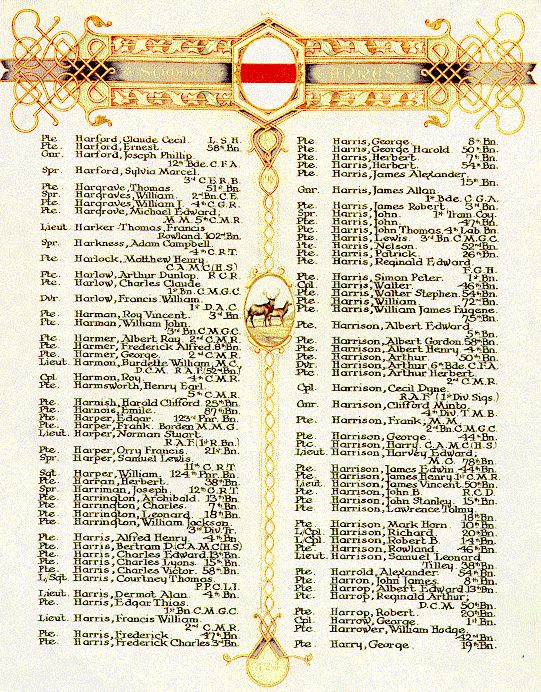 SOMME ARRAS
Pte. Harford, Claude Cecil L.S.H.
Pte. Harford, Ernest 58th Bn.
Gnr. Harford, Joseph Phillip
12th Bde. C.F.A.
Spr. Harford, Sylvia Marcel
3rd C.E.R.B.
Pte. Hargrave, Thomas 51st Bn.
Spr. Hargraves, William 2nd Bn. C.E.
Pte. Hargraves, William J. 4th C.G.R.
Pte. Hargrove, Michael Edward;
M.M. 5th C.M.R.
Lieut. Harker-Thomas, Francis
Rowland 102nd Bn.
Spr. Harkness, Adam Campbell
4th C.R.T.
Pte. Harlock, Matthew Henry
C.A.M.C. (H.S)
Pte. Harlow, Arthur Dunlop R.C.R.
Pte. Harlow, Charles Claude
1st Bn. C.M.G.C.
Dvr. Harlow, Francis William
1st D.A.C.
Pte. Harman, Roy Vincent 3rd Bn.
Pte. Harman, William John
3rd Bn. C.M.G.C.
Pte. Harmer, Albert Ray 2nd C.M.R.
Pte. Harmer, Frederick Alfred 8th Bn.
Pte. Harmer, George 2nd C.M.R.
Lieut. Harmon, Burdette William, M.C.
D.C.M. R.A.F. (52nd Bn.)
Cpl. Harmon, Roy 4th C.M.R.
Pte. Harmsworth, Henry Earl
5th C.M.R.
Pte. Harnish, Harold Clifford 25th Bn.
Pte. Harnois, Emile 87th Bn.
Pte. Harper, Edgar 123rd Pnr. Bn.
Pte. Harper, Frank Borden M.M.G.
Lieut. Harper, Norman Stuart
R.A.F. (1st R. Bn.)
Pte. Harper, Orry Francis 21st Bn.
Spr. Harper, Samuel Lewis
11th C.R.T.
Sgt. Harper, William 124th Pnr. Bn.
Pte. Harran, Herbert 38th Bn.
Spr. Harriman, Joseph 12th C.R.T.
Pte. Harrington, Archibald 13th Bn.
Pte. Harrington, Charles 7th Bn.
Pte. Harrington, Leonard 18th Bn.
Pte. Harrington, William Jackson
3rd Div. Tr.
Pte. Harris, Alfred Henry 4th Bn.
Pte. Harris, Bertram D. (C.A.M.C.) (H.S)
Pte. Harris, Charles Edward 13th Bn.
Pte. Harris, Charles Lyons 15th Bn.
Pte. Harris, Charles Victor 58th Bn.
L/Sgt. Harris, Courtney Thomas
P.P.C.L.I.
Lieut. Harris, Dermot Alan 4th Bn.
Pte. Harris, Edgar Thias
1st Bn. C.M.G.C.
Lieut. Harris, Francis William
2nd C.M.R.
Pte. Harris, Frederick 47th Bn.
Pte. Harris, Frederick Charles 3rd Bn.
Pte. Harris, George 8th Bn.
Pte. Harris, George Harold 50th Bn.
Pte. Harris, Herbert 7th Bn.
Pte. Harris, Herbert 54th Bn.
Pte. Harris, James Alexander
15th Bn.
Gnr. Harris, James Allan
1st Bde. C.G.A.
Pte. Harris, James Robert 3rd Bn.
Spr. Harris, John 1st Tram. Coy.
Pte. Harris, John 47th Bn.
Pte. Harris, John Thomas 4th Lab. Bn.
Pte. Harris, Lewis 3rd Bn. C.M.G.C.
Pte. Harris, Nelson 52nd Bn.
Pte. Harris, Patrick 26th Bn.
Pte. Harris, Reginald Edward
F.G.H.
Pte. Harris, Simon Peter 1st Bn.
Cpl. Harris, Walter 46th Bn.
Pte. Harris, Walter Stephen 54th Bn.
Pte. Harris, William 72nd Bn.
Pte. Harris, William James Eugene
75th Bn.
Pte. Harrison, Albert Edward
5th Bn.
Pte. Harrison, Albert Gordon 58th Bn.
Pte. Harrison, Albert Henry 4th Bn.
Pte. Harrison, Arthur 50th Bn.
Dvr. Harrison, Arthur 6th Bde. C.F.A.
Pte. Harrison, Arthur Herbert
2nd C.M.R.
Cpl. Harrison, Cecil Dyne
R.A.F. (1st Div. Sigs.)
Gnr. Harrison, Clifford Minto
4th Div. T.M.B.
Pte. Harrison, Frank, M.M.
2nd Bn. C.M.G.C.
Pte. Harrison, George 44th Bn.
Pte. Harrison, Harry C.A.M.C. (H.S)
Lieut. Harrison, Harvey Edward;
M.C. 78th Bn.
Pte. Harrison, James Edwin 44th Bn.
Pte. Harrison, James Henry 1st C.M.R.
Lieut. Harrison, James Vincent 50th Bn.
Pte. Harrison, John B. R.C.D.
Pte. Harrison, John Stanley 15th Bn.
Pte. Harrison, Lawrence Tolmy
18th Bn.
Pte. Harrison, Mark Horn 10th Bn.
L/Cpl. Harrison, Richard 20th Bn.
L/Cpl. Harrison, Robert B. 14th Bn.
Pte. Harrison, Rowland 46th Bn.
Lieut. Harrison, Samuel Leonard
Tilley 38th Bn.
Pte. Harrold, Alexander 54th Bn.
Pte. Harron, John James 8th Bn.
Pte. Harrop, Albert Edward 13th Bn.
Pte. Harrop, Reginald Arthur;
D.C.M. 50th Bn.
Pte. Harrop, Robert 20th Bn.
Cpl. Harrow, George 1st Bn.
Pte. Harrower, William Hodge
42nd Bn.
Pte. Harry, George 19th Bn.